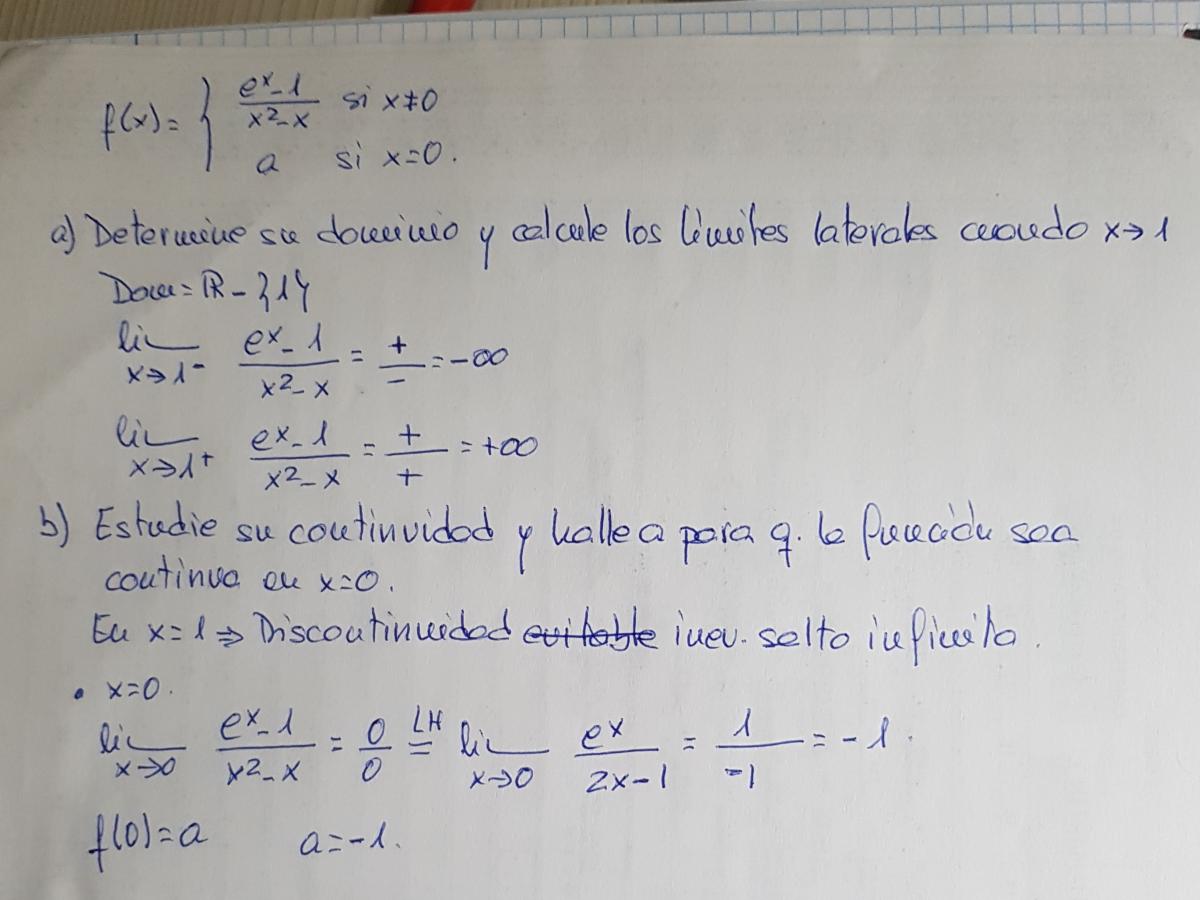 f(x)= { (e^x-1)/(x^2-x) si x≠0
a si x=0.
a) Determine su dominio y calcule los límites laterales cuando x→1
Dom=ℝ-{1}
lim x→1^- (e^x-1)/(x^2-x) = +/- = -∞
lim x→1^+ (e^x-1)/(x^2-x) = +/+ = +∞
b) Estudie su continuidad y halle a para q. la función sea
continua en x=0.
En x=1 ⇒ Discontinuidad evitable inev. salto infinito.
• x=0.
lim x→0 (e^x-1)/(x^2-x) = 0/0 LH= lim x→0 e^x/(2x-1) = 1/-1 = -1.
f(0)=a a=-1.